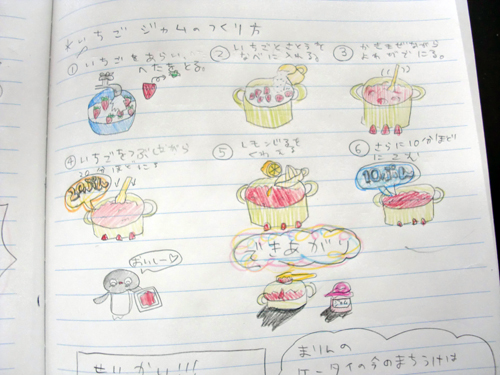 いちごジャムのつくり方
① いちごをあらい、
へたをとる。
② いちごとさとうを
なべに入れる。
③ かきまぜながら
よわ火でにる。
④ いちごをつぶしながら
20分ほどにる
20ぷん
⑤ レモンじるを
くわえる
⑥ さらに10分ほど
にこむ
10ぷん
できあがり
おいしー♡
せいかい!!!
まりんの
ケータイの今のまちうけは